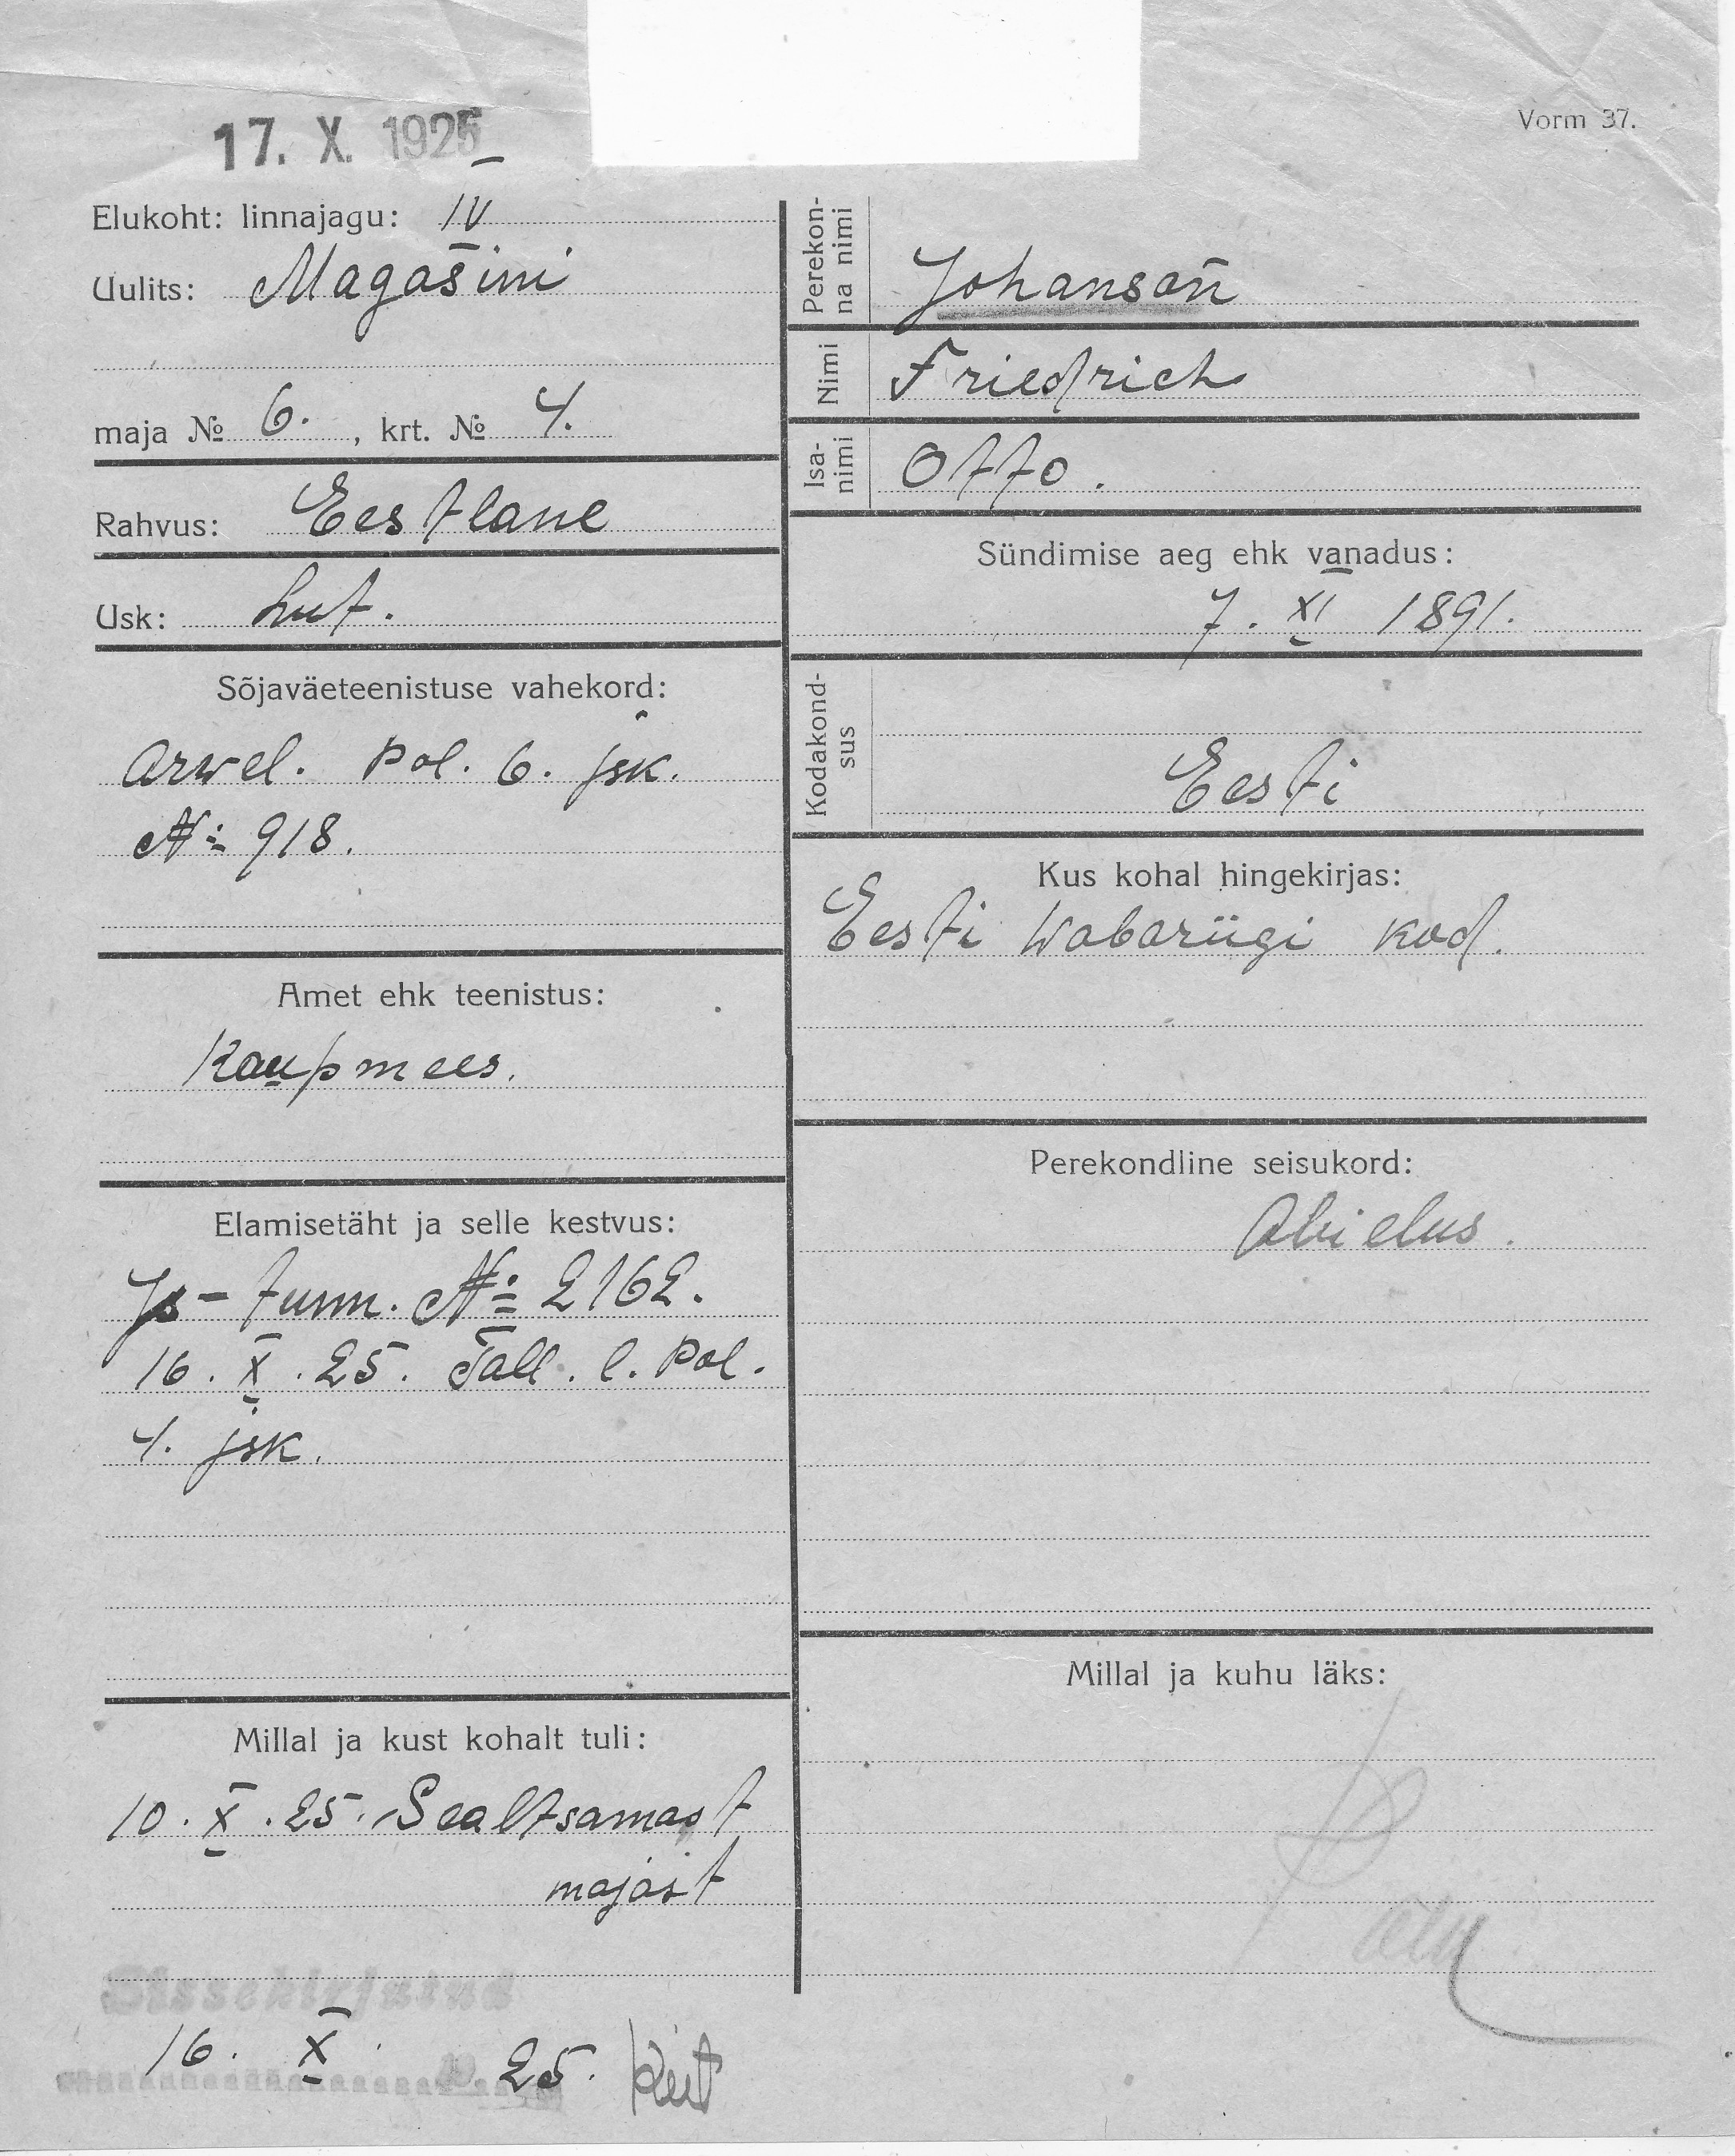 17. X. 1925
Vorm 37.
Elukoht: linnajagu: IV
Uulits: Magasini
maja № 6. , krt. № 4.
Rahvus: Eestlane
Usk: Lut.
Sõjaväeteenistuse vahekord:
Arwel. Pol. 6. jsk.
№ 918.
Amet ehk teenistus:
Kaupmees.
Elamisetäht ja selle kestvus:
Is-tunn. № 2162.
16. X. 25. Tall. l. Pol.
4. jsk.
Millal ja kust kohalt tuli:
10. X. 25. Sealtsamast
majast
Sissekirjutud
16. X. 25.
Perekonna nimi Johanson
Nimi Friedrich
Isanimi Otto.
Sündimise aeg ehk vanadus:
7. XI 1891.
Kodakondsus
Eesti
Kus kohal hingekirjas:
Eesti Wabariigi kod.
Perekondline seisukord:
Abielus.
Millal ja kuhu läks: